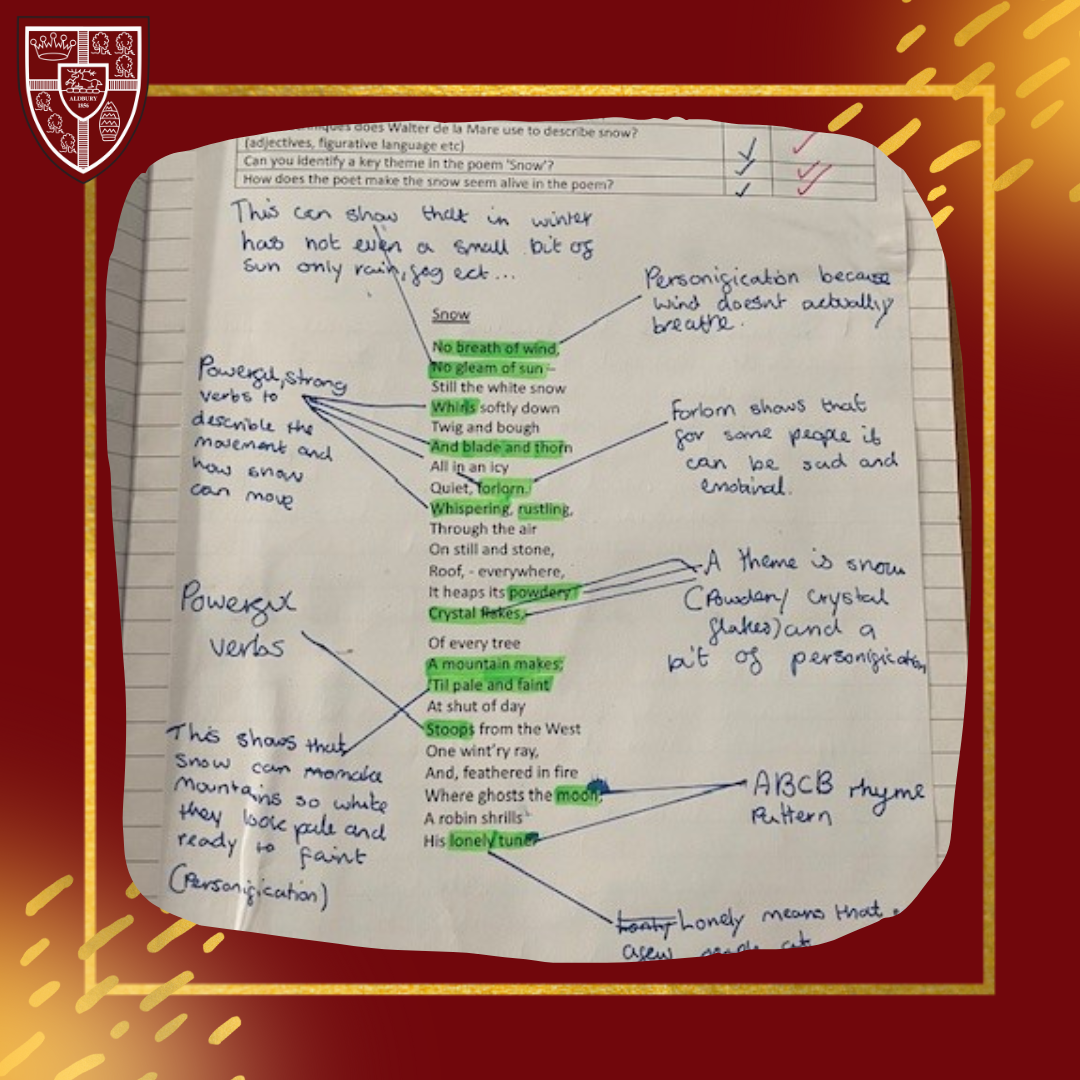 ALDBURY
1856
does Walter de la Mare use to describe snow?
(adjectives, figurative language etc)
Can you identify a key theme in the poem 'Snow'?
How does the poet make the snow seem alive in the poem?
This can show that in winter
has not even a small bit of
sun only rain, fog ect...
Personification because
wind doesnt actually
breathe.
Powerful, strong
verbs to
describle the
movement and
how snow
can move
Forlorn shows that
for some people it
can be sad and
emotinal.
A theme is snow
(Powder/ Crystal
flakes) and a
bit of personification
Powerful
verbs
This shows that
snow can momake
mountains so white
they look pale and
ready to faint
(Personification)
ABCB rhyme
Pattern
Lonely means that
afew
Snow
No breath of wind,
No gleam of sun –
Still the white snow
Whirls softly down
Twig and bough
And blade and thorn
All in an icy
Quiet, forlorn.
Whispering, rustling,
Through the air
On still and stone,
Roof, - everywhere,
It heaps its powdery
Crystal flakes,
Of every tree
A mountain makes;
'Til pale and faint
At shut of day
Stoops from the West
One wint'ry ray,
And, feathered in fire
Where ghosts the moon,
A robin shrills
His lonely tune